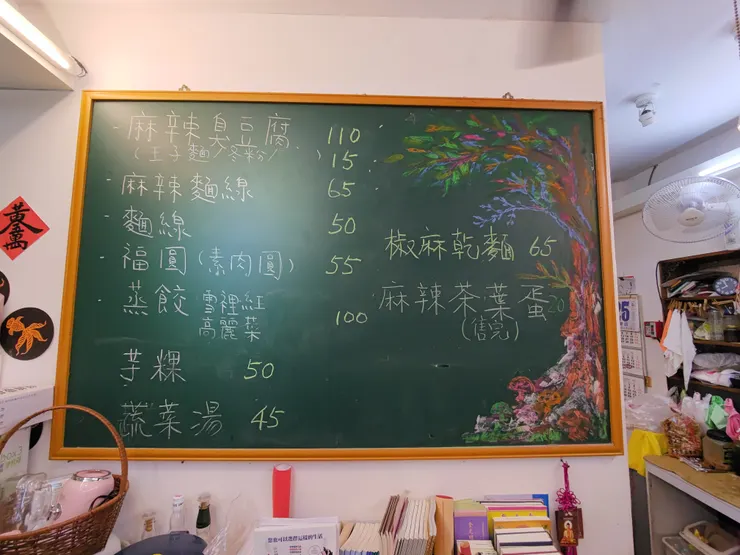 麻辣臭豆腐 110
(王子麵/冬粉/ ) 15
麻辣麵線 65
麵線 50
福圓(素肉圓) 55
蒸餃 雪裡紅
高麗菜 100
芋粿 50
蔬菜湯 45
椒麻乾麵 65
麻辣茶葉蛋 20
(售完)